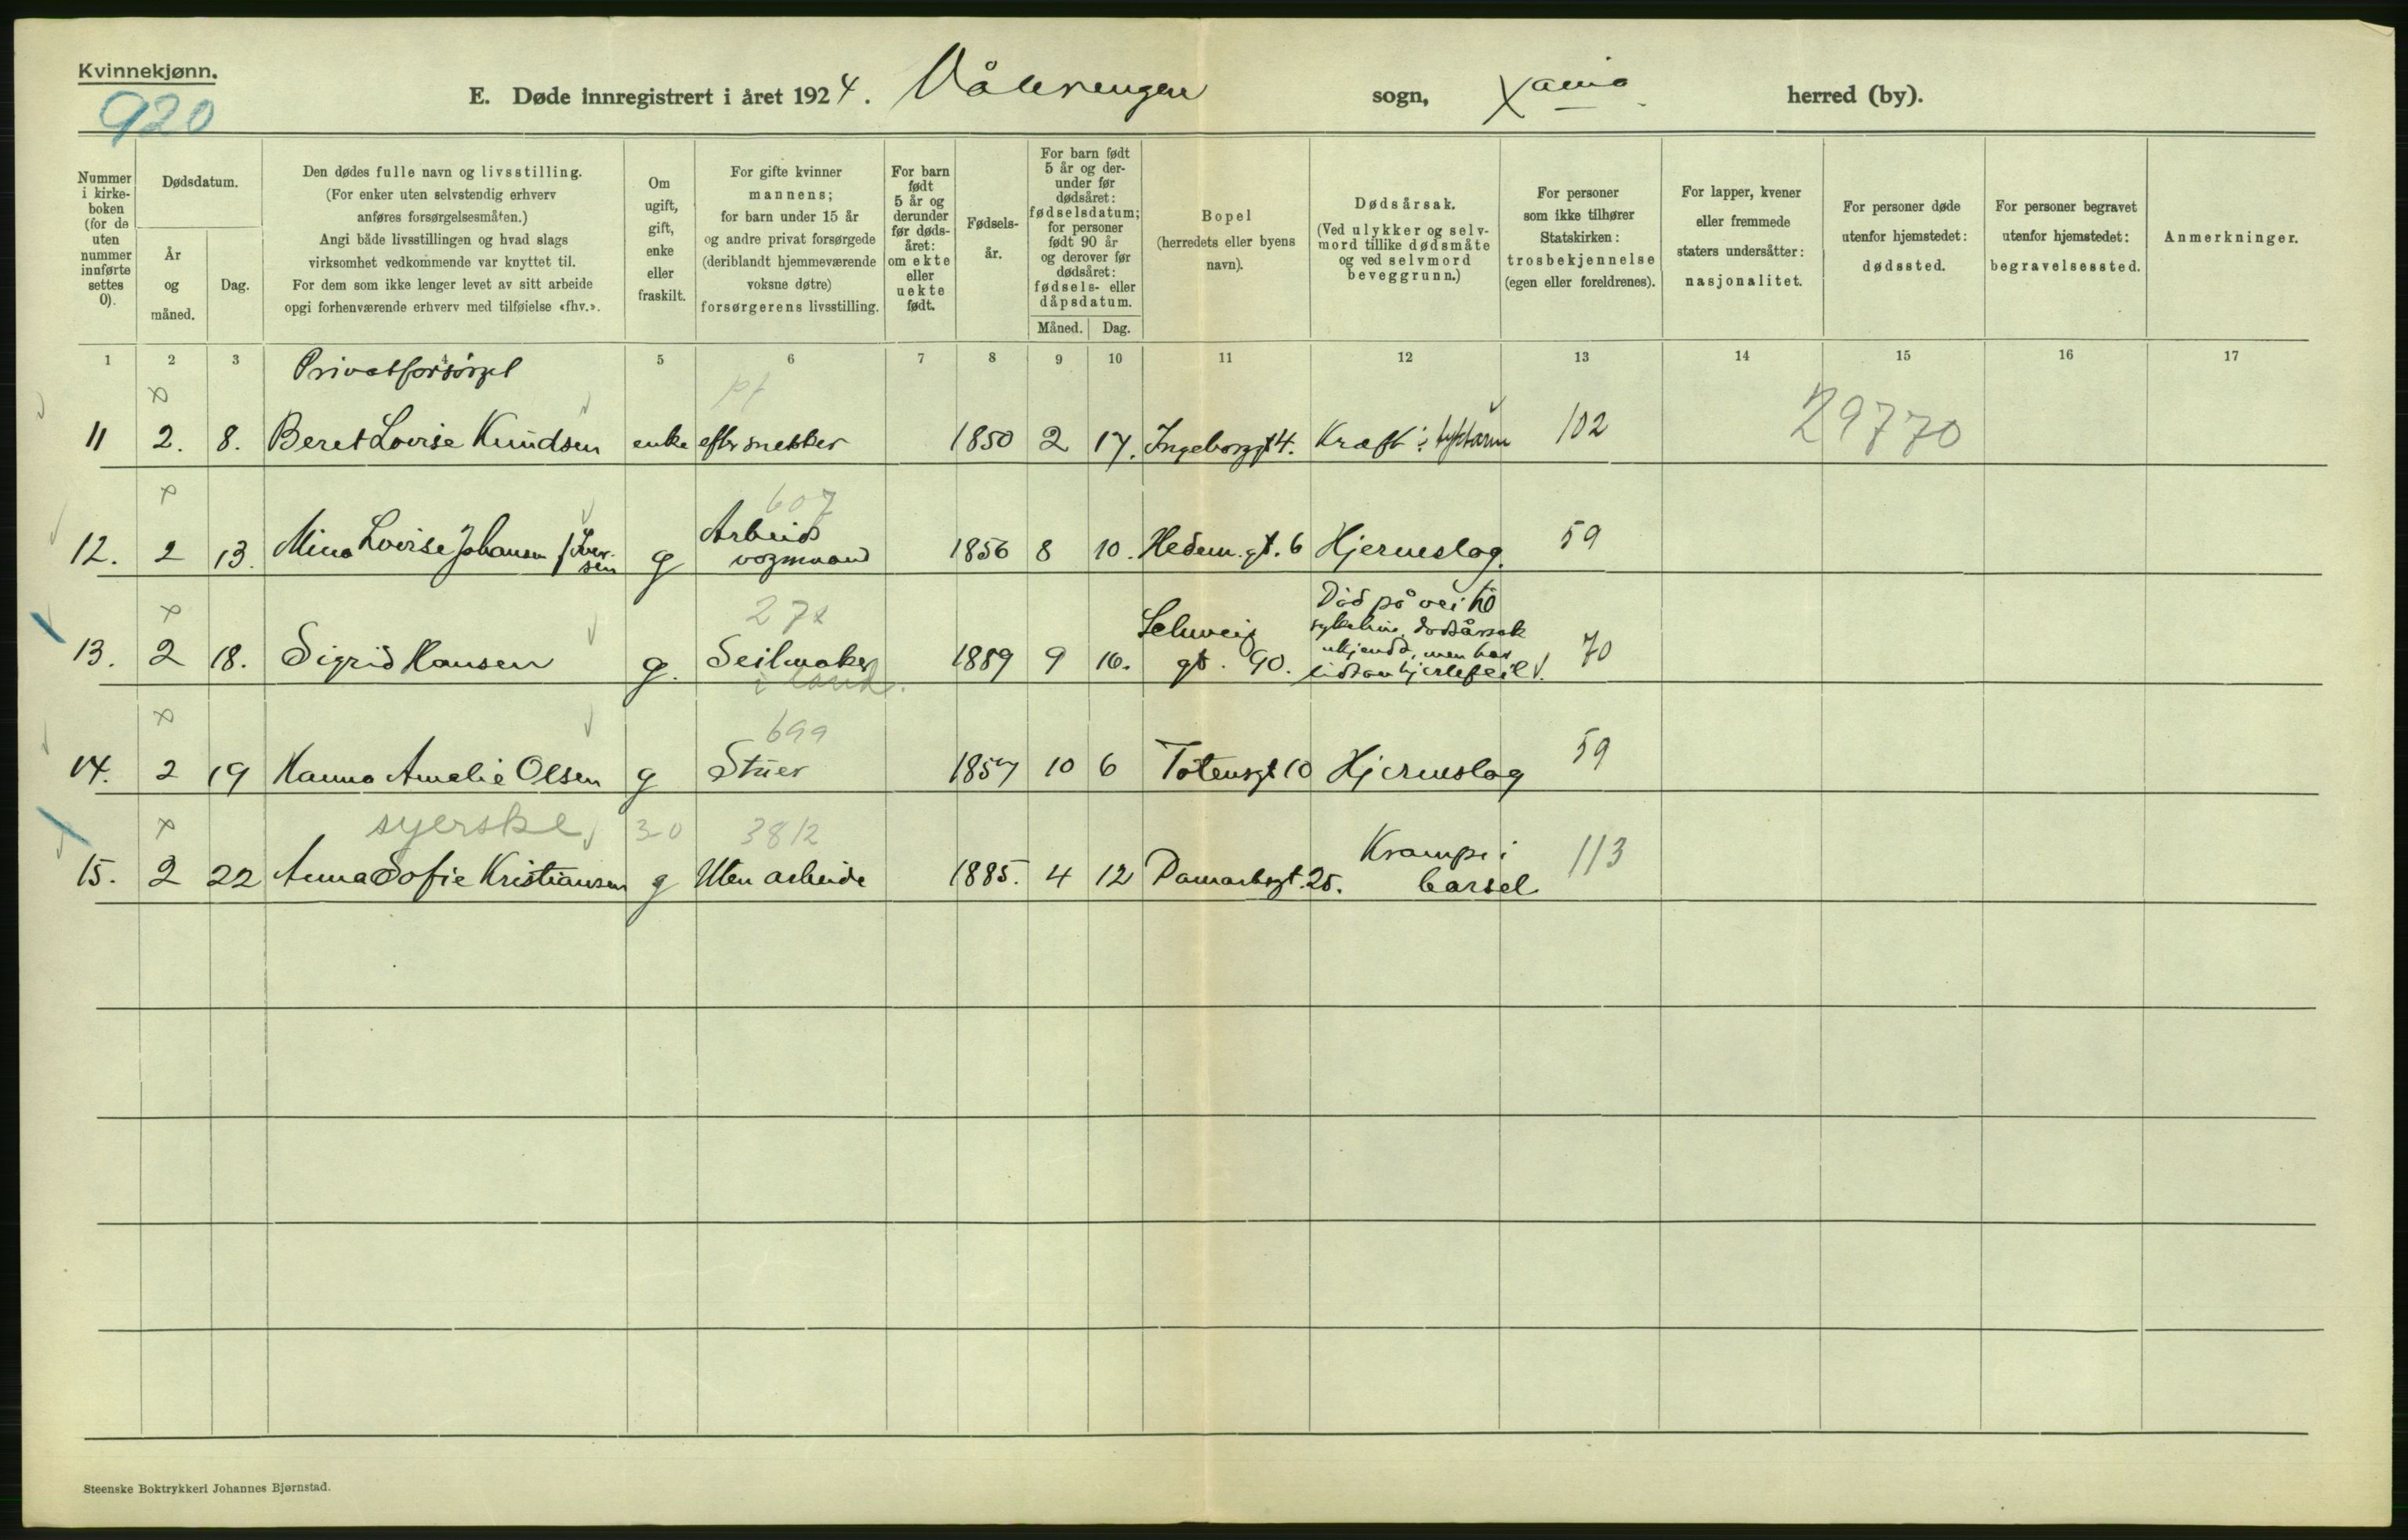 Kvinnekjønn.
920
E. Døde innregistrert i året 1924. Vålerengen sogn, Xania herred (by).
Nummer i kirkeboken (for de uten nummer innførte settes 0).
Dødsdatum.
År og måned.
Dag.
Den dødes fulle navn og livsstilling.
(For enker uten selvstendig erhverv
anføres forsørgelsesmåten.)
Angi både livsstillingen og hvad slags
virksomhet vedkommende var knyttet til.
For dem som ikke lenger levet av sitt arbeide
opgi forhenværende erhverv med tilføielse «fhv.».
Om ugift, gift, enke eller fraskilt.
For gifte kvinner
mannens;
for barn under 15 år
og andre privat forsørgede
(deriblandt hjemmeværende
voksne døtre)
forsørgerens livsstilling.
For barn født 5 år og derunder før dødsåret: om ekte eller uekte født.
Fødselsår.
For barn født 5 år og derunder før dødsåret: fødselsdatum; for personer født 90 år og derover før dødsåret: fødsels- eller dåpsdatum.
Måned. Dag.
Bopel
(herredets eller byens
navn).
Dødsårsak.
(Ved ulykker og selv-
mord tillike dødsmåte
og ved selvmord
beveggrunn.)
For personer
som ikke tilhører
Statskirken:
trosbekjennelse
(egen eller foreldrenes).
For lapper, kvener
eller fremmede
staters undersåtter:
nasjonalitet.
For personer døde
utenfor hjemstedet:
dødssted.
For personer begravet
utenfor hjemstedet:
begravelsessted.
Anmerkninger.
1 2 3 4 5 6 7 8 9 10 11 12 13 14 15 16 17
Privatforsørget
x pf
11 2. 8. Beret Lovise Knudsen enke efter snekker 1850 2 17. Ingeborggt 4. Kræft i tyktarm 102 29770
x 607
12. 2 13. Mina Lovise Johansen f. Iversen g Arbeids vogmand 1856 8 10. Hedem.gt. 6 Hjerneslag. 59
x 272
13. 2 18. Sigrid Hansen g. Seilmaker i land. 1889 9 16. Schweig gt. 90. Død på vei til sykehus, dødsårsak ukjendt, men har lidt av hjertefeil. 70
x 699
14. 2 19 Hanna Amalie Olsen g Stuer 1857 10 6 Totensgt 10 Hjerneslag 59
x syerske 30 3812
15. 2 22 Anna Sofie Kristiansen g Uten arbeide 1885. 4 12 Danmarksgt. 25. Krampe i barsel 113
Steenske Boktrykkeri Johannes Bjørnstad.